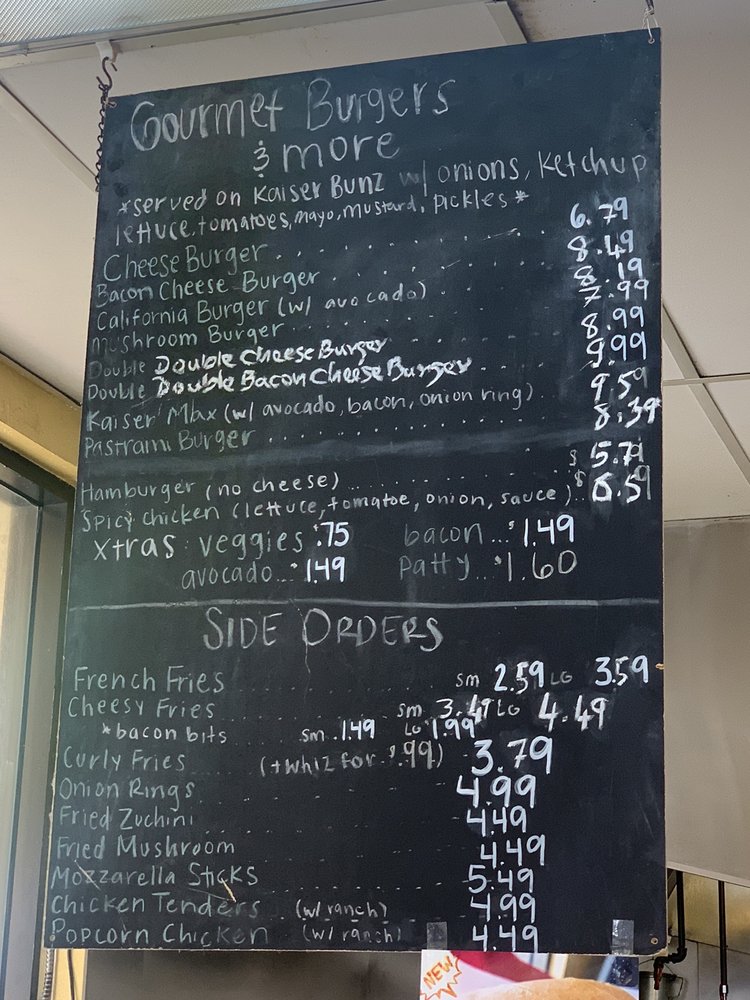 Gourmet Burgers
& more
*served on Kaiser Bunz w/ onions, Ketchup
lettuce, tomatoes, mayo, mustard, pickles*
Cheese Burger 6.79
Bacon Cheese Burger 8.49
California Burger (w/ avocado) 8.19
Mushroom Burger 7.99
Double Double Cheese Burger 8.99
Double Double Bacon Cheese Burger 9.99
Kaiser Max (w/ avocado, bacon, onion ring) 9.59
Pastrami Burger 8.39
Hamburger (no cheese) $5.79
Spicy chicken (lettuce, tomatoe, onion, sauce)
xtras: veggies .75 bacon... $1.49
avocado... $1.49 Patty... $1.60
SIDE ORDERS
French Fries sm 2.59 LG 3.59
Cheesy Fries sm 3.49 LG 4.49
*bacon bits sm 1.49 LG 1.99
Curly Fries (+whiz for $.99) 3.79
Onion Rings 4.99
Fried Zuchini 4.49
Fried Mushroom 4.49
Mozzarella Sticks 5.49
Chicken Tenders (w/ ranch) 4.99
Popcorn Chicken (w/ ranch) 4.49
NEW